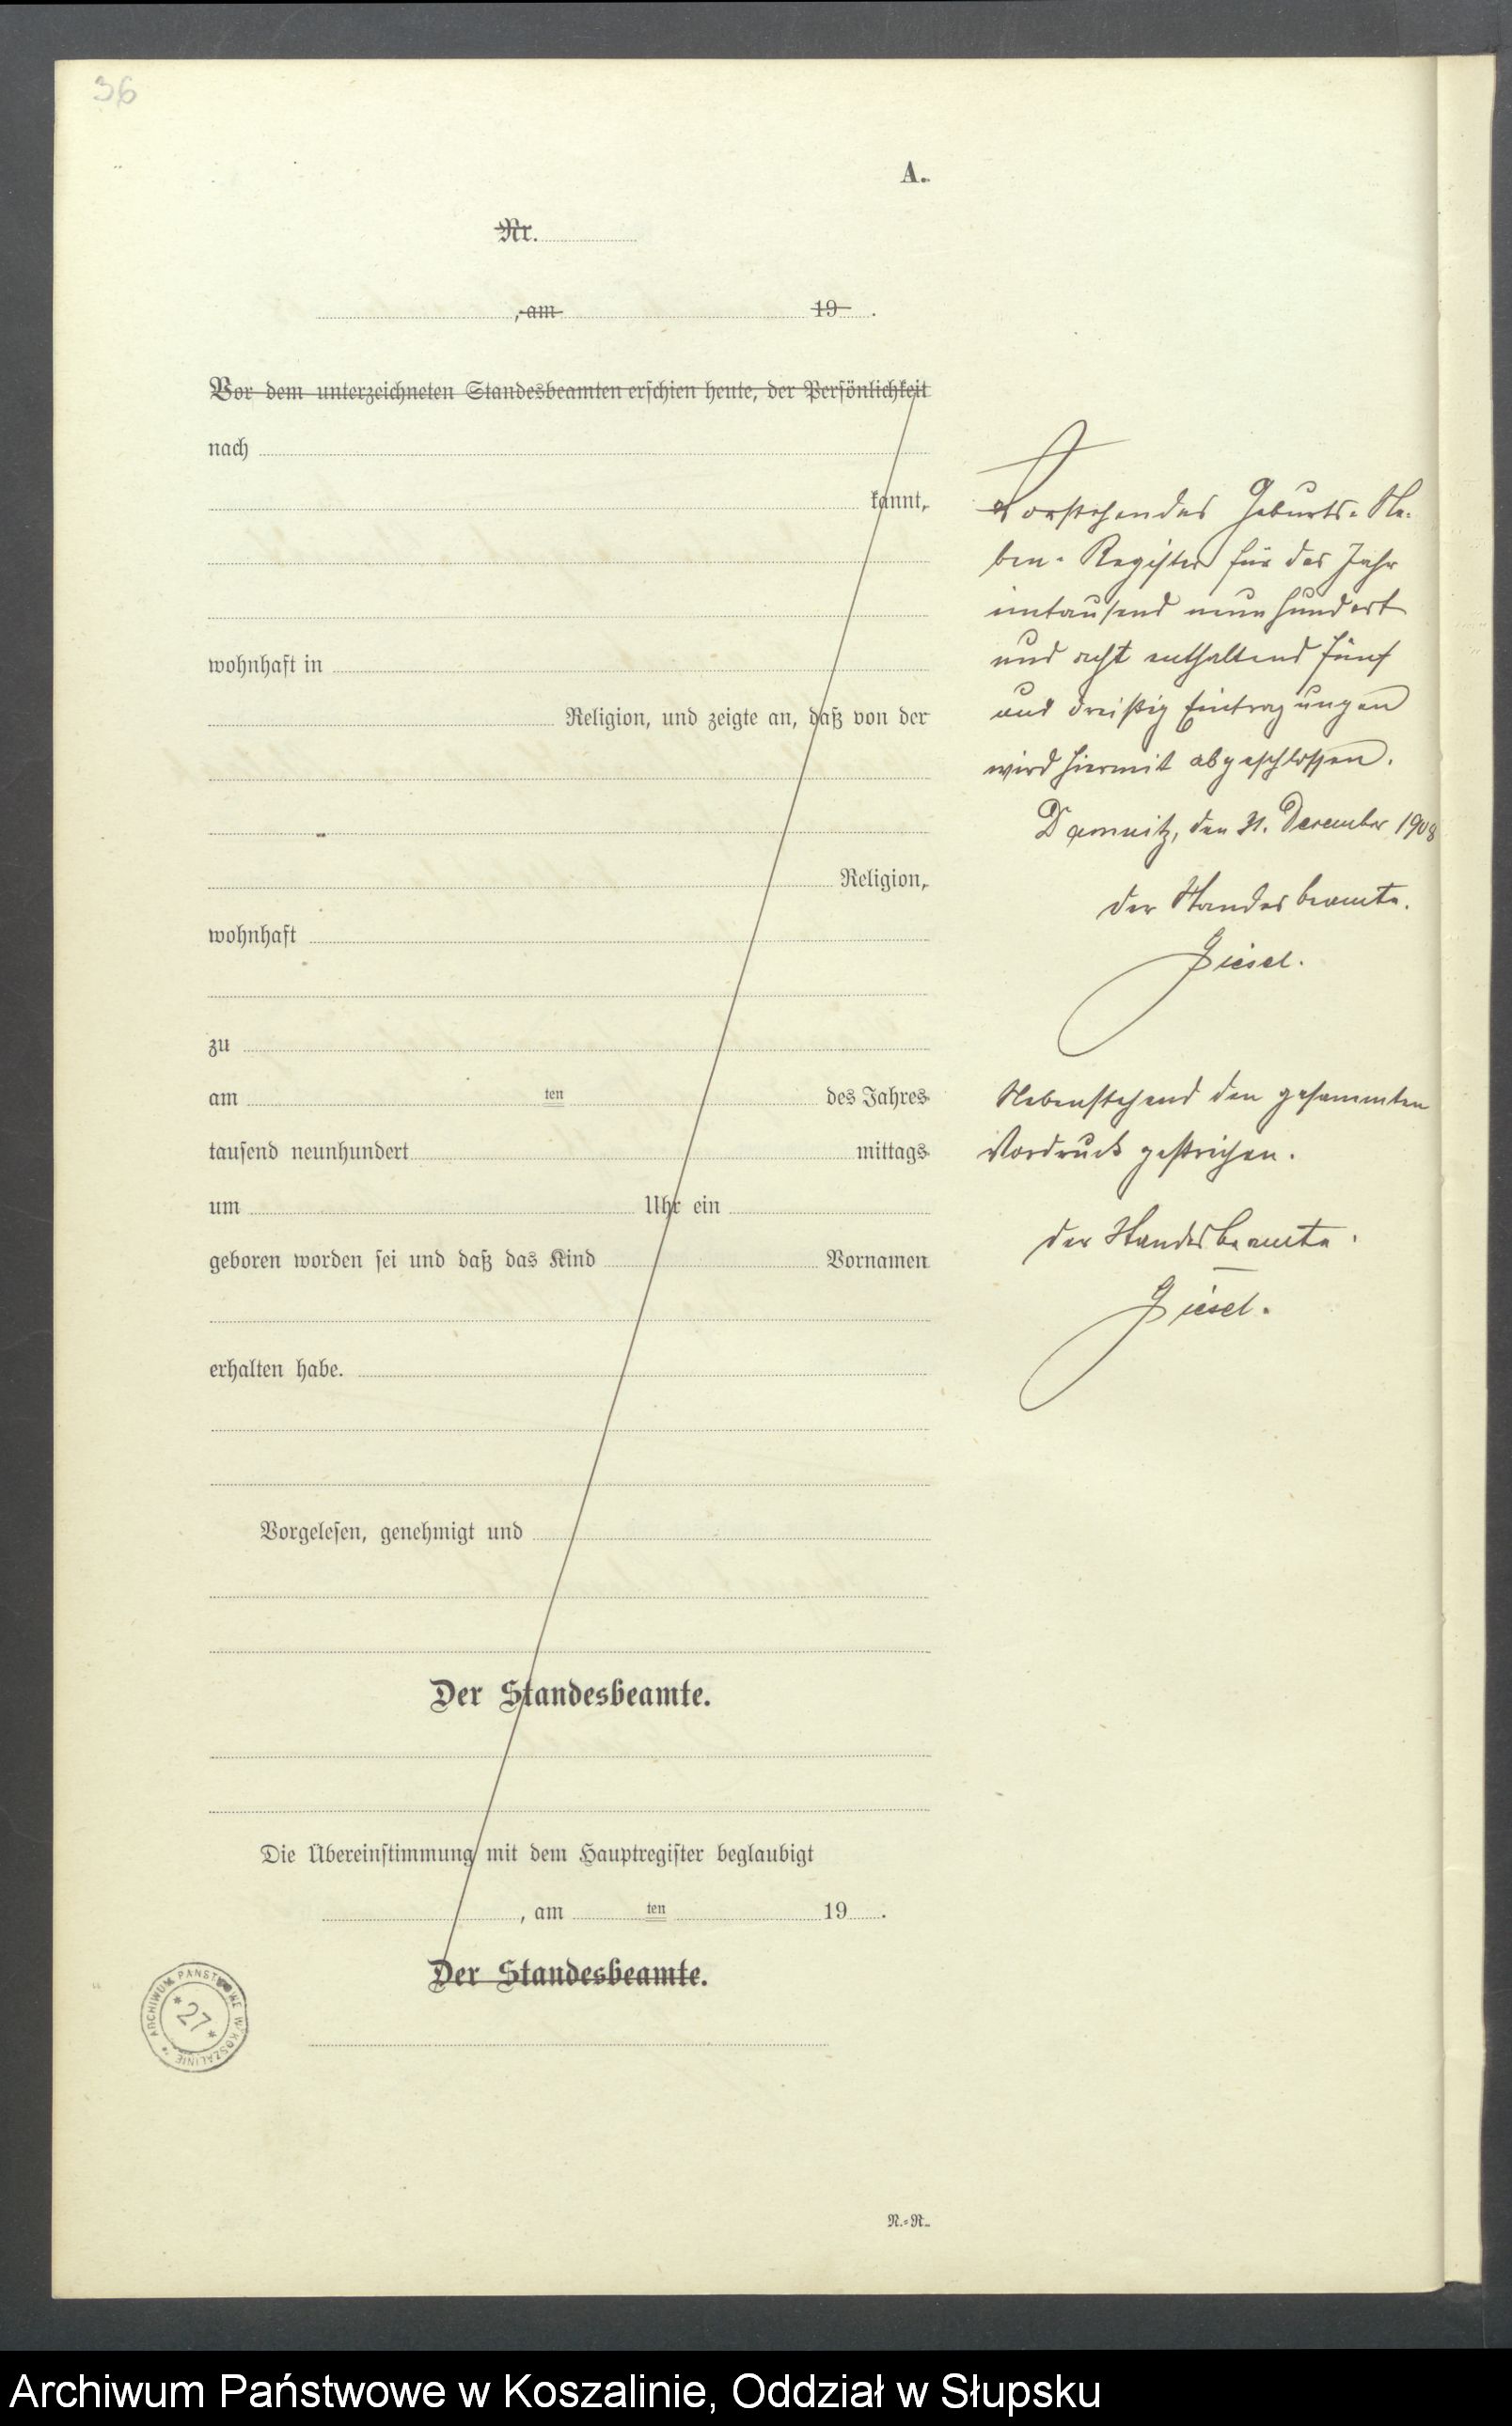 36
A.
Nr.
, am 19 .
Vor dem unterzeichneten Standesbeamten erschien heute, der Persönlichkeit
nach
kannt,
wohnhaft in
Religion, und zeigte an, daß von der
Religion,
wohnhaft
zu
am ten des Jahres
tausend neunhundert mittags
um Uhr ein
geboren worden sei und daß das Kind Vornamen
erhalten habe.
Vorgelesen, genehmigt und
Der Standesbeamte.
Die Übereinstimmung mit dem Hauptregister beglaubigt
, am ten 19 .
Der Standesbeamte.
N.=R.
Vorstehendes Geburts-Ne-
ben-Register für das Jahr
eintausend neunhundert
und acht enthaltend fünf
und dreißig Eintragungen
wird hiermit abgeschlossen.
Damnitz, den 31. Dezember 1908
Der Standesbeamte.
Giesel.
Nebenstehend den gesammten
Vordruck gestrichen.
Der Standesbeamte.
Giesel.
ARCHIWUM PAŃSTWOWE W KOSZALINIE
* 27 *
Archiwum Państwowe w Koszalinie, Oddział w Słupsku